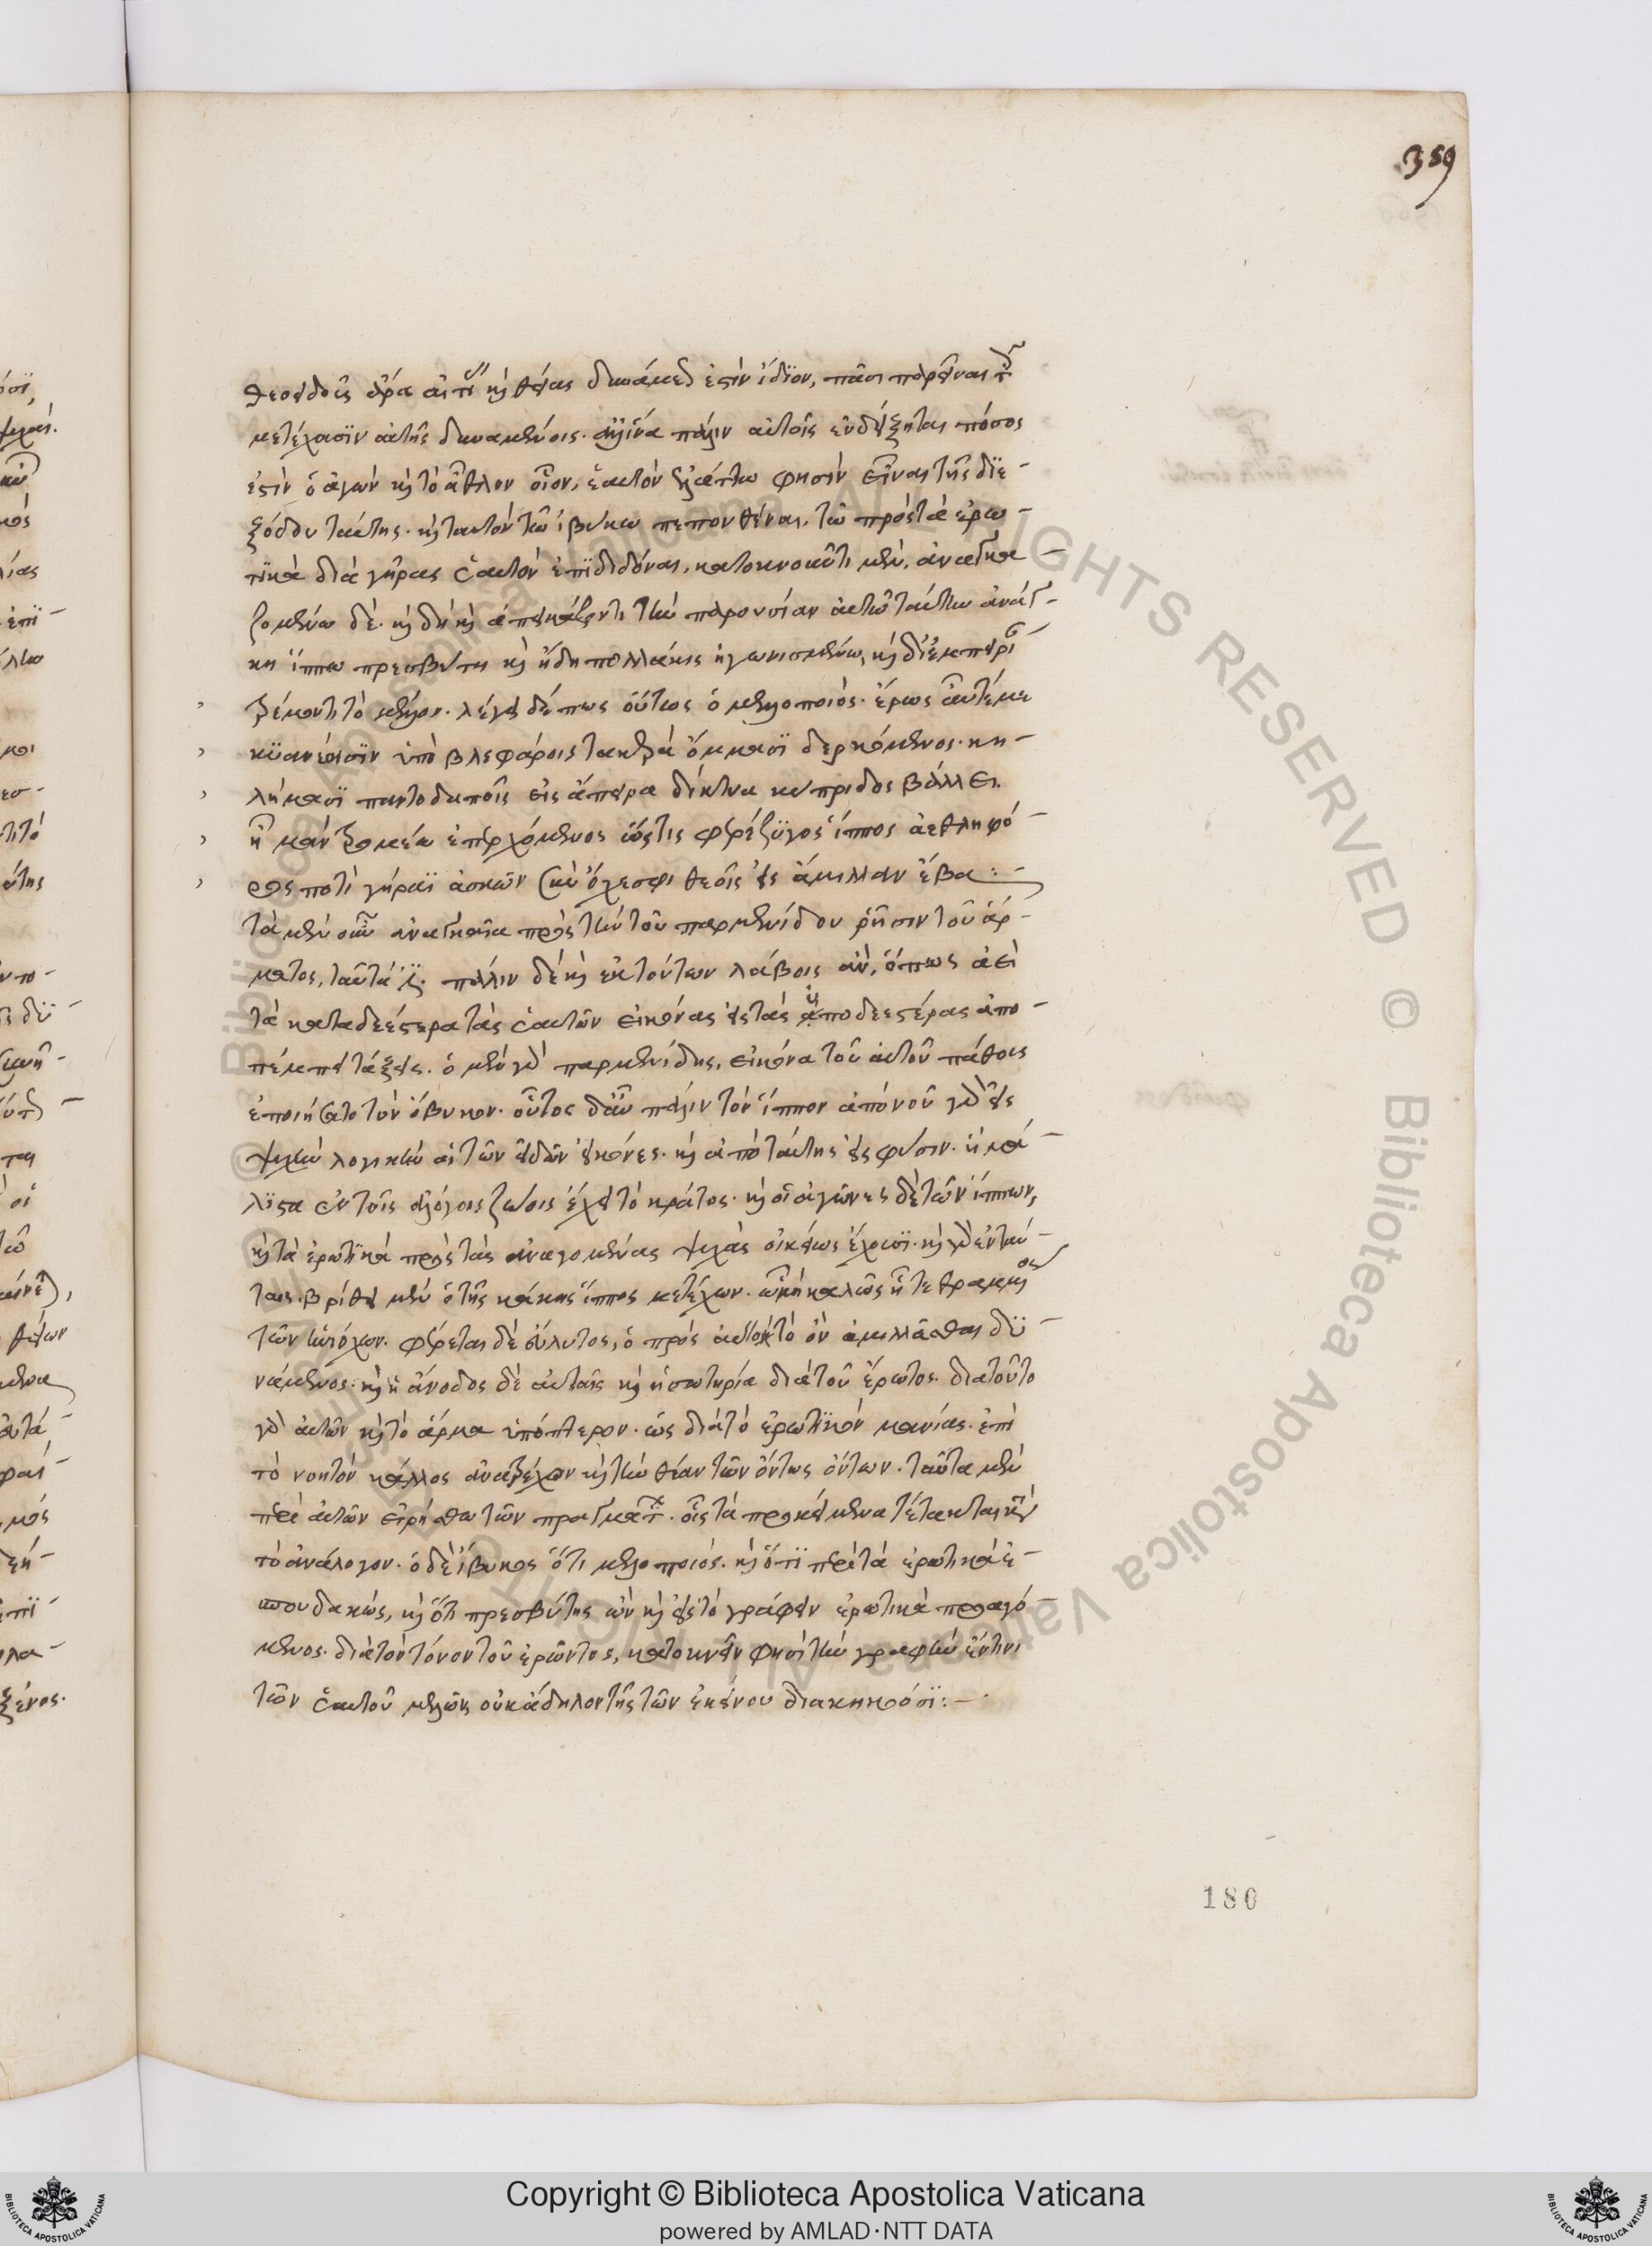 359
θεοειδοῦς ἄρα αἰτίας καὶ θείας δυνάμεώς ἐστιν ἴδιον, πᾶσι παρεῖναι τοῖς
μετέχασϊν αὐτῆς δυναμένοις. ἀλλ' ἵνα πάλιν αὐτοῖς ἐνδείξηται πόσος
ἐστὶν ὁ ἀγὼν καὶ τὸ ἆθλον οἷον, ἑαυτὸν ἐλάττω φησὶν εἶναι τῆς δϊε-
ξόδου ταύτης. καὶ ταυτὸν τῶ ἰβύκω πεπονθέναι, τῶ πρὸς τὰ ἐρω-
τϊκὰ διὰ γῆρας ἑαυτὸν ἐπϊδιδόναι, κατοκνοῦντι μὲν, ἀναγκα-
ζομένω δέ. καὶ δὴ καὶ ἀπεικάζοντι τὴν παρουσίαν αὐτῶ ταύτην ἀνάγ-
κη ἵππω πρεσβύτη καὶ ἤδη πολλάκις ἠγωνισμένω, καὶ δι' ἐμπειρίας
τρέμοντι τὸ μέλλον. λέγει δέ πως οὕτως ὁ μελοποιός. ἔρως αὖτέ με
κϋανέοισϊν ὑπὸ βλεφάροις τακερὰ ὄμμασϊ δερκόμενος. κη-
λήμασϊ παντοδαποῖς εἰς ἄπειρα δίκτυα κύπριδος βάλλει.
ἦ μὰν τρομέω ἐπερχόμενος ὥς τις φερέζϋγος ἵππος ἀεθλοφό
ρος ποτὶ γήραϊ ἀσκῶν σὺν ὄχεσφι θεοῖς εἰς ἅμιλλαν ἔβα:-
τὰ μὲν οὖν ἀναγκαῖα πρὸς τὴν τοῦ παρμενίδου ῥῆσιν τοῦ ἅρ-
ματος, ταῦτά ἐστι. πάλιν δὲ καὶ ἐκ τούτων λάβοις ἂν, ὅπως ἀεὶ
τὰ καταδεέστερα τὰς ἑαυτῶν εἰκόνας εἰς τὰς ὑποδεεστέρας ἀπο-
πέμπει τάξεις. ὁ μὲν γὰρ παρμενίδης, εἰκόνα τοῦ αὐτοῦ πάθους
ἐποιήσατο τὸν ἴβυκον. οὗτος δ' αὖ πάλιν τὸν ἵππον ἀπὸ νοῦ γὰρ εἰς
ψυχὴν λογικὴν αἱ τῶν εἰδῶν εἰκόνες. καὶ ἀπὸ ταύτης εἰς φύσιν. ἡ μά-
λϊστα ἐν τοῖς ἀλόγοις ζώοις ἔχει τὸ κράτος. καὶ οἱ ἀγῶνες δὲ τῶν ἵππων,
καὶ τὰ ἐρωτϊκὰ πρὸς τὰς ἀναγομένας ψυχὰς οἰκείως ἔχουσϊ. καὶ γὰρ ἐνταύ-
ταις. βρίθει μὲν ὁ τῆς κάκης ἵππος μετέχων. ὧ μὴ καλῶς ἦ τεθραμμένος
τῶν ἡνιόχων. φέρεται δὲ εὔλυτος, ὁ πρὸς αὐτὸ τὸ ὂν ἁμιλλᾶσθαι δϋ-
νάμενος. καὶ ἡ ἄνοδος δὲ αὐταῖς καὶ ἡ σωτηρία διὰ τοῦ ἔρωτος. διὰ τοῦτο
γὰρ αὐτῶν καὶ τὸ ἅρμα ὑπόπτερον. ὡς διὰ τὸ ἐρωτϊκὸν μανίας. ἐπὶ
τὸ νοητὸν κάλλος ἀνατρέχον καὶ τὴν θέαν τῶν ὄντως ὄντων. ταῦτα μὲν
περὶ αὐτῶν εἰρήσθω τῶν πραγμάτων. οἷς τὰ προκείμενα τέτακται κατὰ
τὸ ἀνάλογον. ὁ δὲ ἴβυκος ὅτι μελοποιός. καὶ ὅτϊ περὶ τὰ ἐρωτικὰ ἐ-
σπουδακὼς, καὶ ὅτι πρεσβύτης ὢν καὶ εἰς τὸ γράφειν ἐρωτικὰ προαγό-
μενος. διὰ τὸν τόνον τοῦ ἐρῶντος, κατοκνεῖν φησὶ τὴν γραφὴν ἔν τινι
τῶν ἑαυτοῦ μελῶν οὐκ ἄδηλον τοῖς τῶν ἐκείνου διακηκοόσϊ:-
180